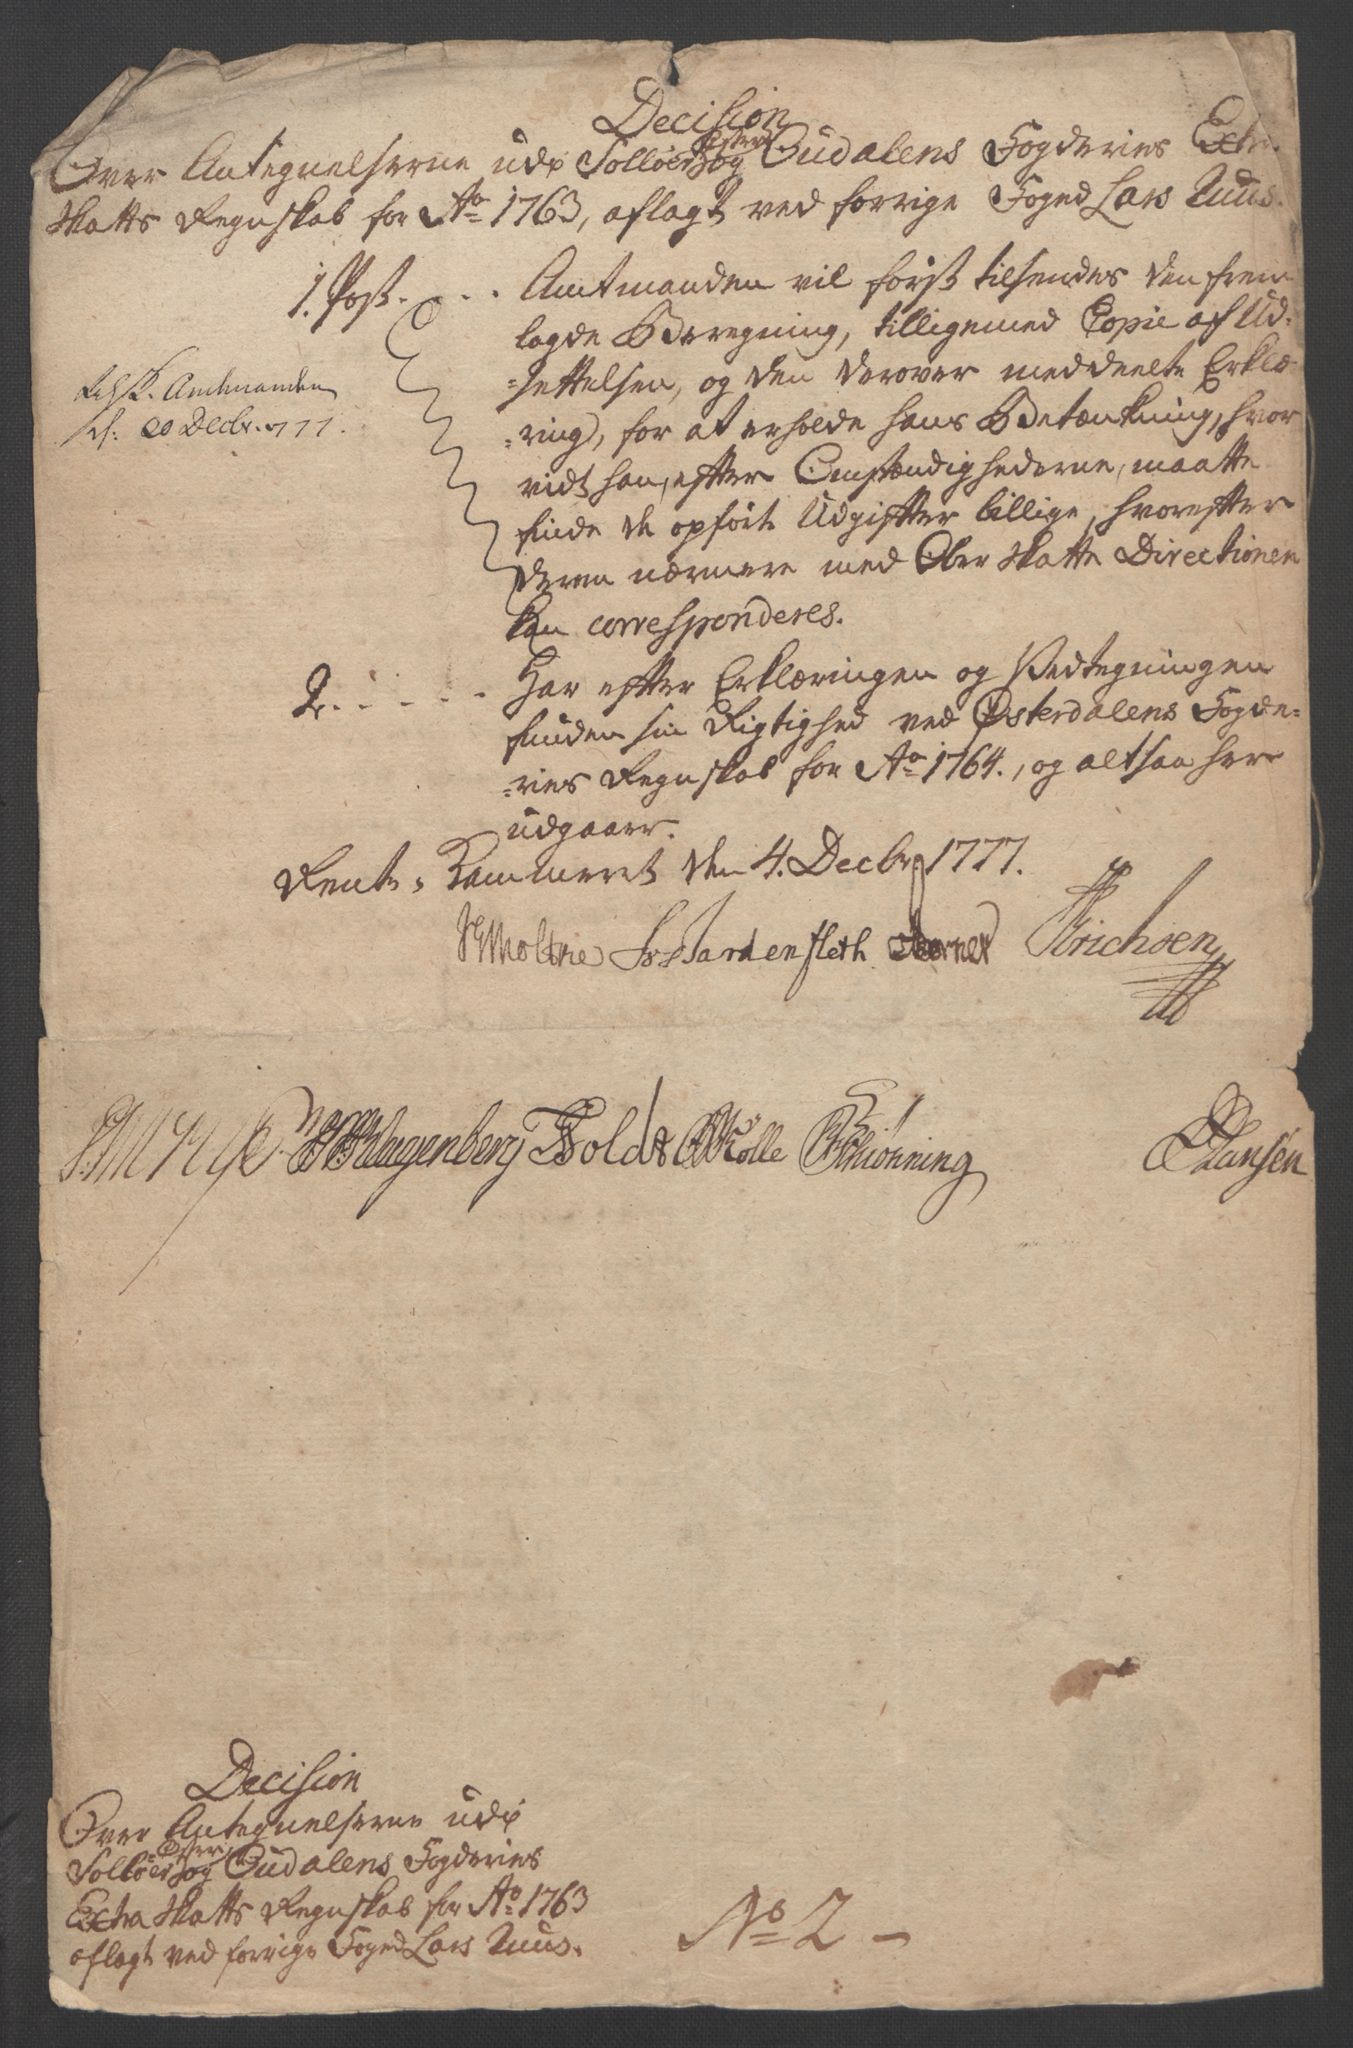 Decision
Over Antegnelserne udi Solløer, Øster og Oudalens Fogderies Extra
Skatts Regnskab for Ao 1763, aflagt ved forrige Foged Lars Nuus.
1. Post . . . . Amtmanden vil først tilsendes den frem
lagde Beregning, tilligemed Copie af Ud-
-settelsen, og den derover meddeelte Erklæ-
-ring, for at erholde hans Betænkning, hvor
vidt han, efter Omstændighederne, maatte
finde de opførte Udgifter billige, hvorefter
derom nærmere med Ober Skatte Directionen
kan corresponderes.
Amtmanden
20 Decbr. 777.
2. . . . . . Har efter Erklæringen og Paategningen
funden sin Rigtighed ved Østerdalens Fogde-
-ries Regnskab for Ao 1764., og altsaa her
udgaaer.
Rente-Kammeret den 4. Decbr 1777.
Moltke Hardenfleth Berner Erichsen
Klagenberg Toldt Kølle Schiønning Hansen
Decision
Over Antegnelserne udi
Solløer, Øster og Oudalens Fogderies
Extra Skatts Regnskab for Ao 1763
aflagt ved forrige Foged Lars Nuus.
No 2 –